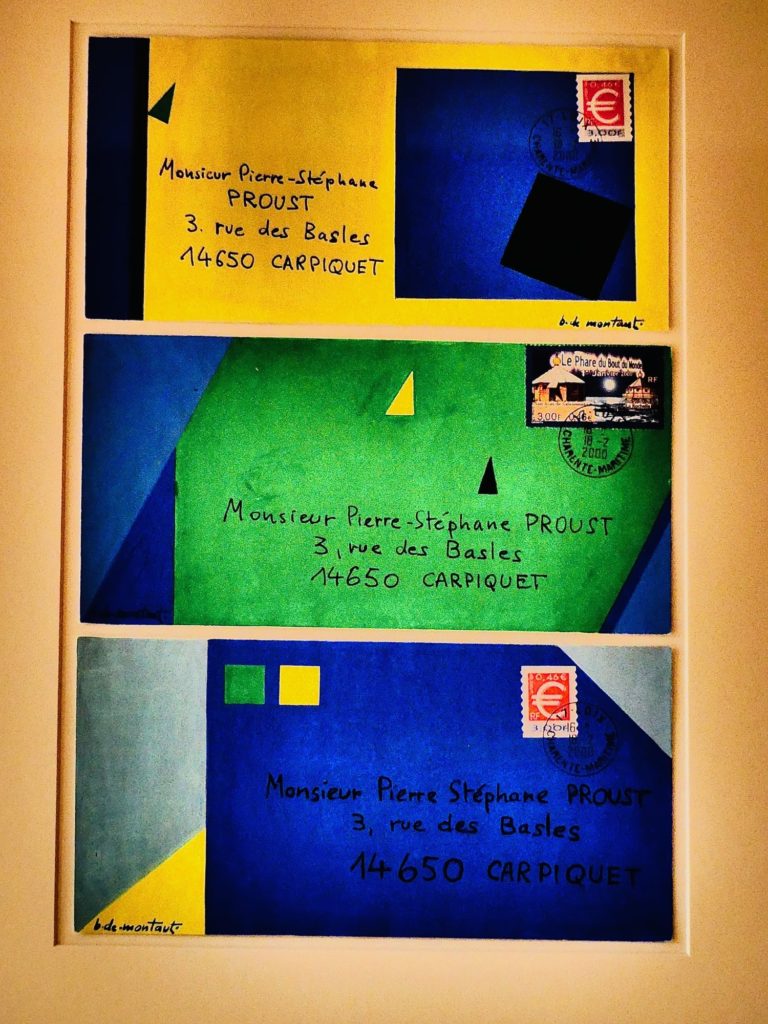 0,46€
€
3,00F
17-LOIX
2000
CHARENTE-MARITIME
Monsieur Pierre-Stéphane
PROUST
3. rue des Basles
14650 CARPIQUET
b. de montaut.
Le Phare du Bout du Monde
RF
3,00F 0,46€
18-2
2000
CHARENTE-MARITIME
Monsieur Pierre-Stéphane PROUST
3, rue des Basles
14650 CARPIQUET
b. de montaut
0,46€
€
RF
3,00F
17-LOIX
2000
CHARENTE-MARITIME
Monsieur Pierre Stéphane PROUST
3, rue des Basles
14650 CARPIQUET
b. de montaut.